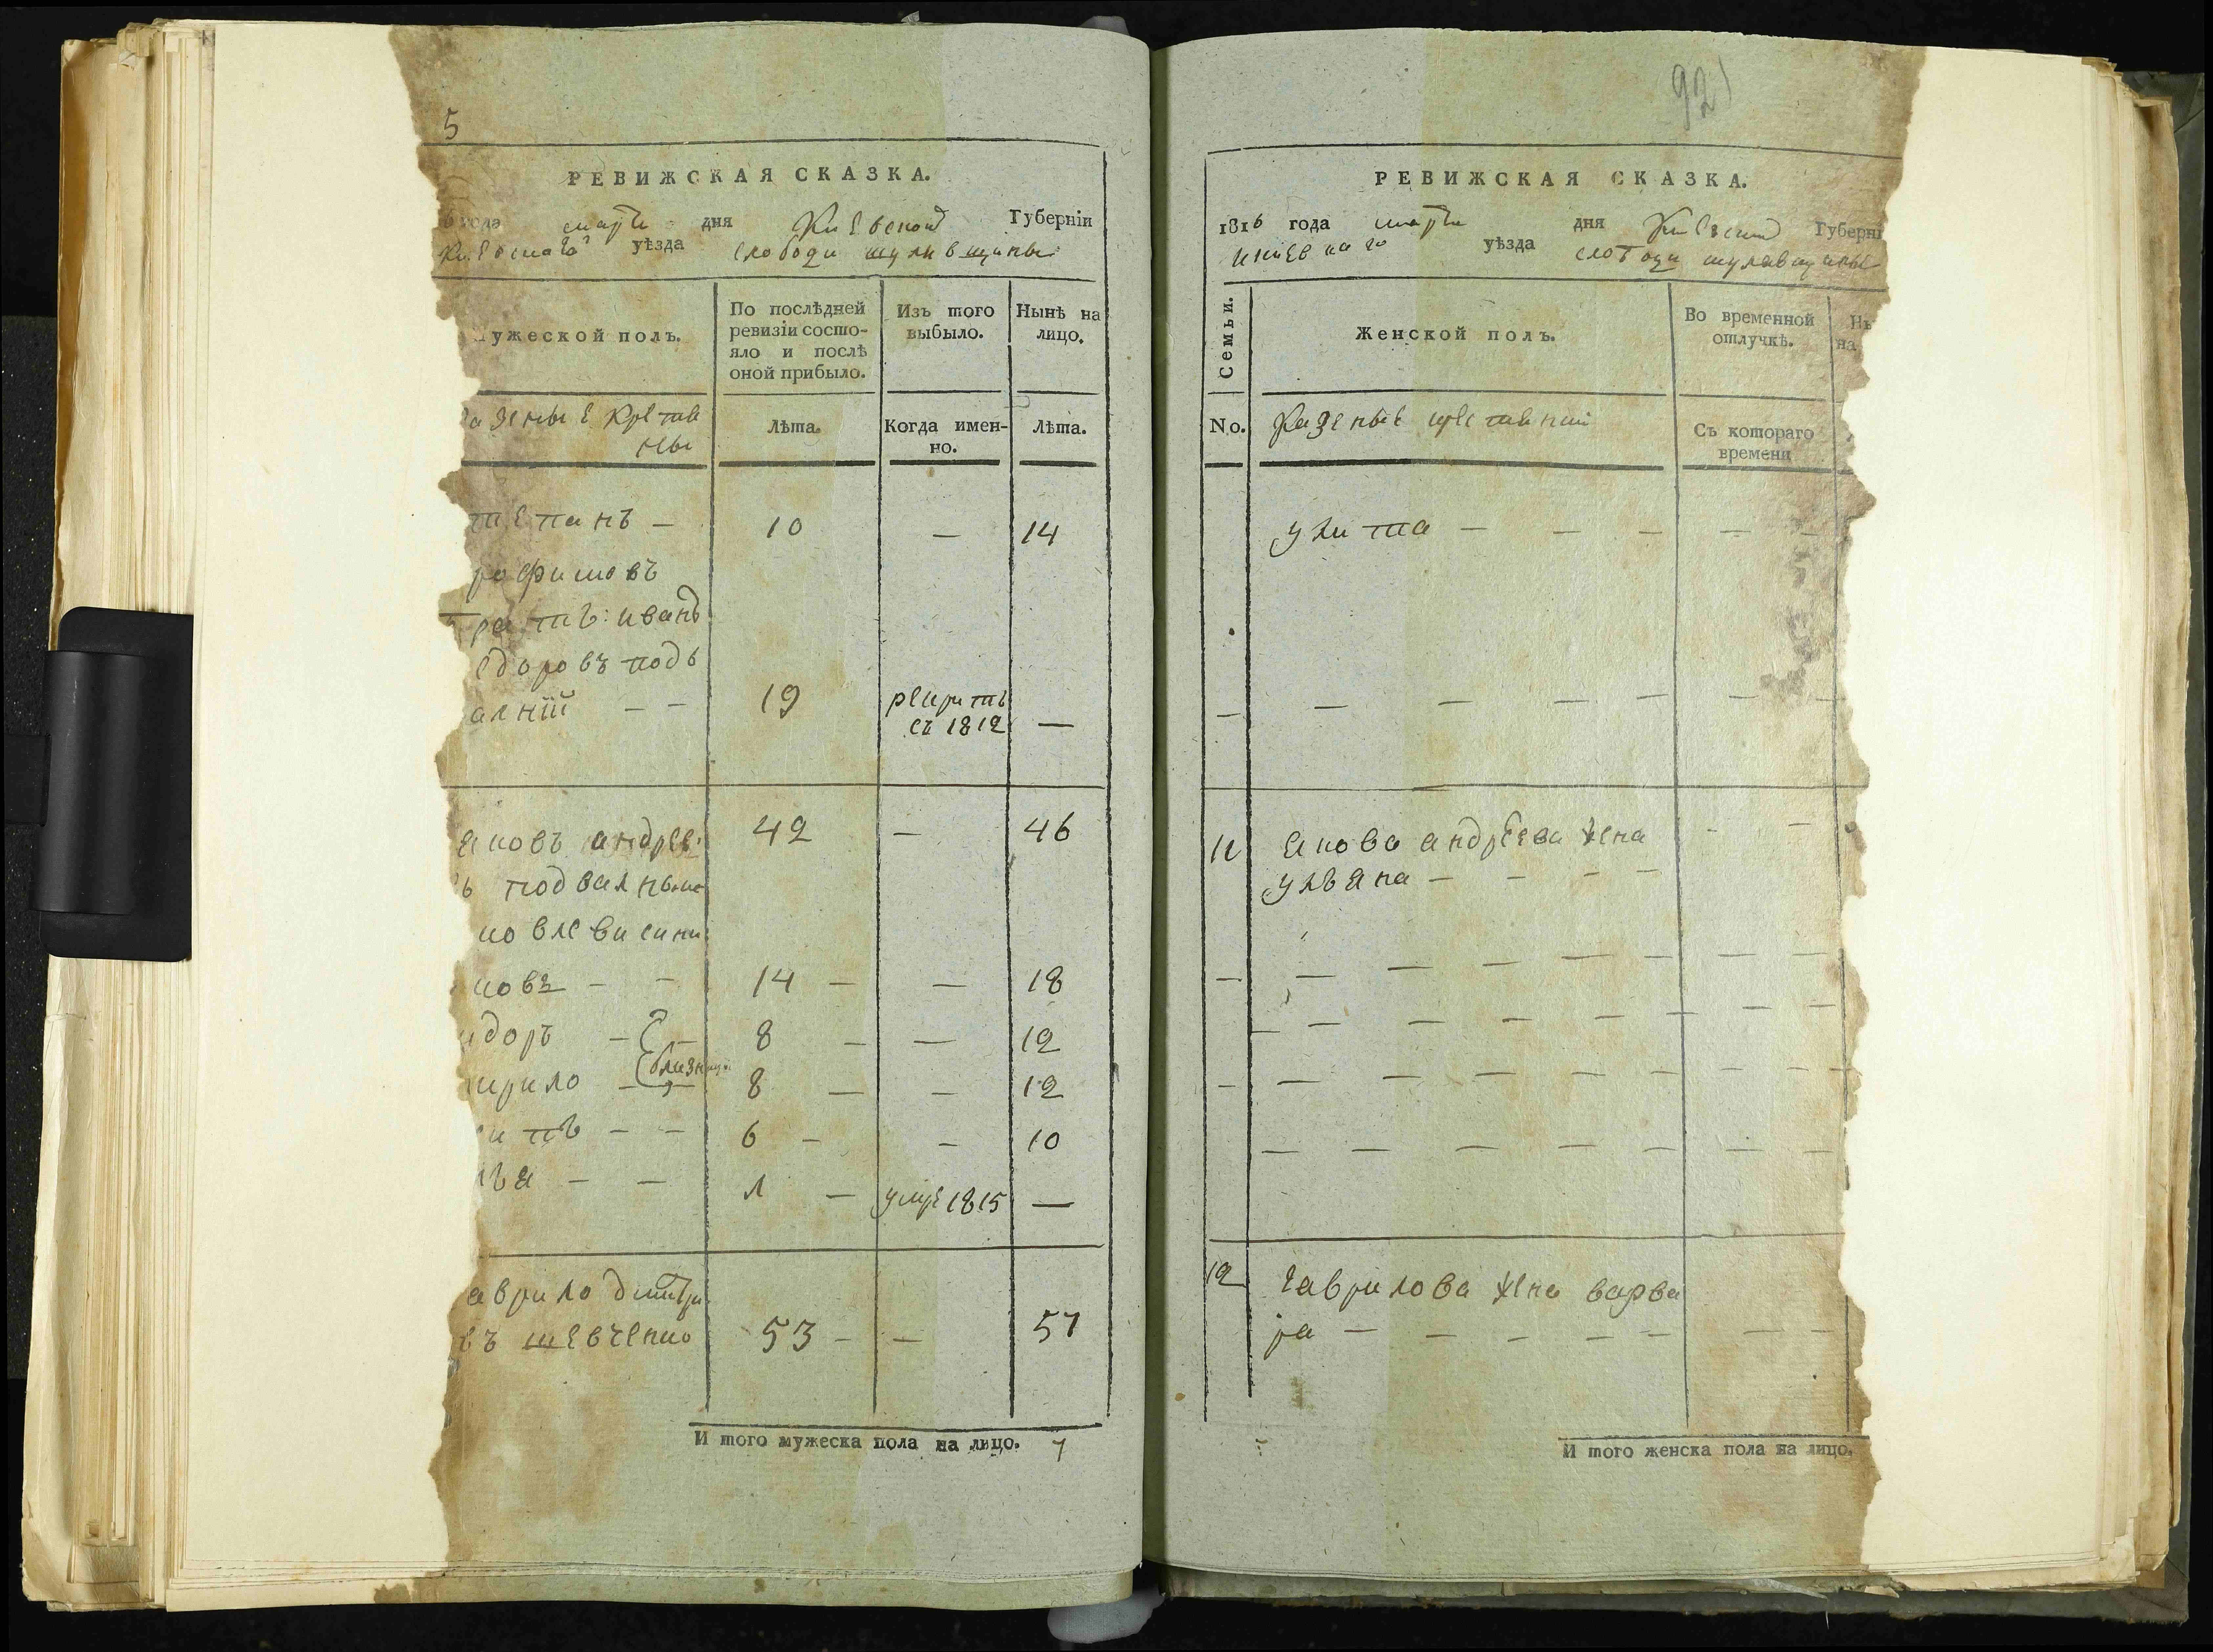 5
РЕВИЖСКАЯ СКАЗКА.
6 года марта дня Киевской Губерніи
Киевскаго уѣзда слободи шулявщины
ужеской полъ.
По послѣдней
ревизіи состо-
яло и послѣ
оной прибыло.
Изъ того
выбыло.
Нынѣ на
лицо.
азеные крестия
ны
Лѣта.
Когда имен-
но.
Лѣта.
тепанъ — 10 — 14
рофимовъ
ратъ: иванъ
едоровъ подв
алнїй — — 19 рекрутъ
съ 1812 —
Яковъ андрее: 42 — 46
ъ подвалны
ковлеви сини:
ковъ — — 14 — — 18
идоръ — 8 — — 12
близн
ирило — 8 — — 12
ипъ — — 6 — — 10
лья — — 1 — умре 1815 —
аврило дмитри
въ шевченко 53 — — 57
И того мужеска пола на лицо. 7
92
РЕВИЖСКАЯ СКАЗКА.
1816 года марта дня Киевской Губерні
киевскаго уѣзда слободи шулявщины
Семьи.
Женской полъ.
Во временной
отлучкѣ.
Нъ
на
No.
Казеные крестияни
Съ котораго
времени
улита — — — — —
— — — — — — —
11 Якова андреева жена — —
уляна — — — —
— — — — — — — —
— — — — — — — —
— — — — — — — —
— — — — — — —
12 гаврилова жена варва
ра — — — — — — —
И того женска пола на лицо.